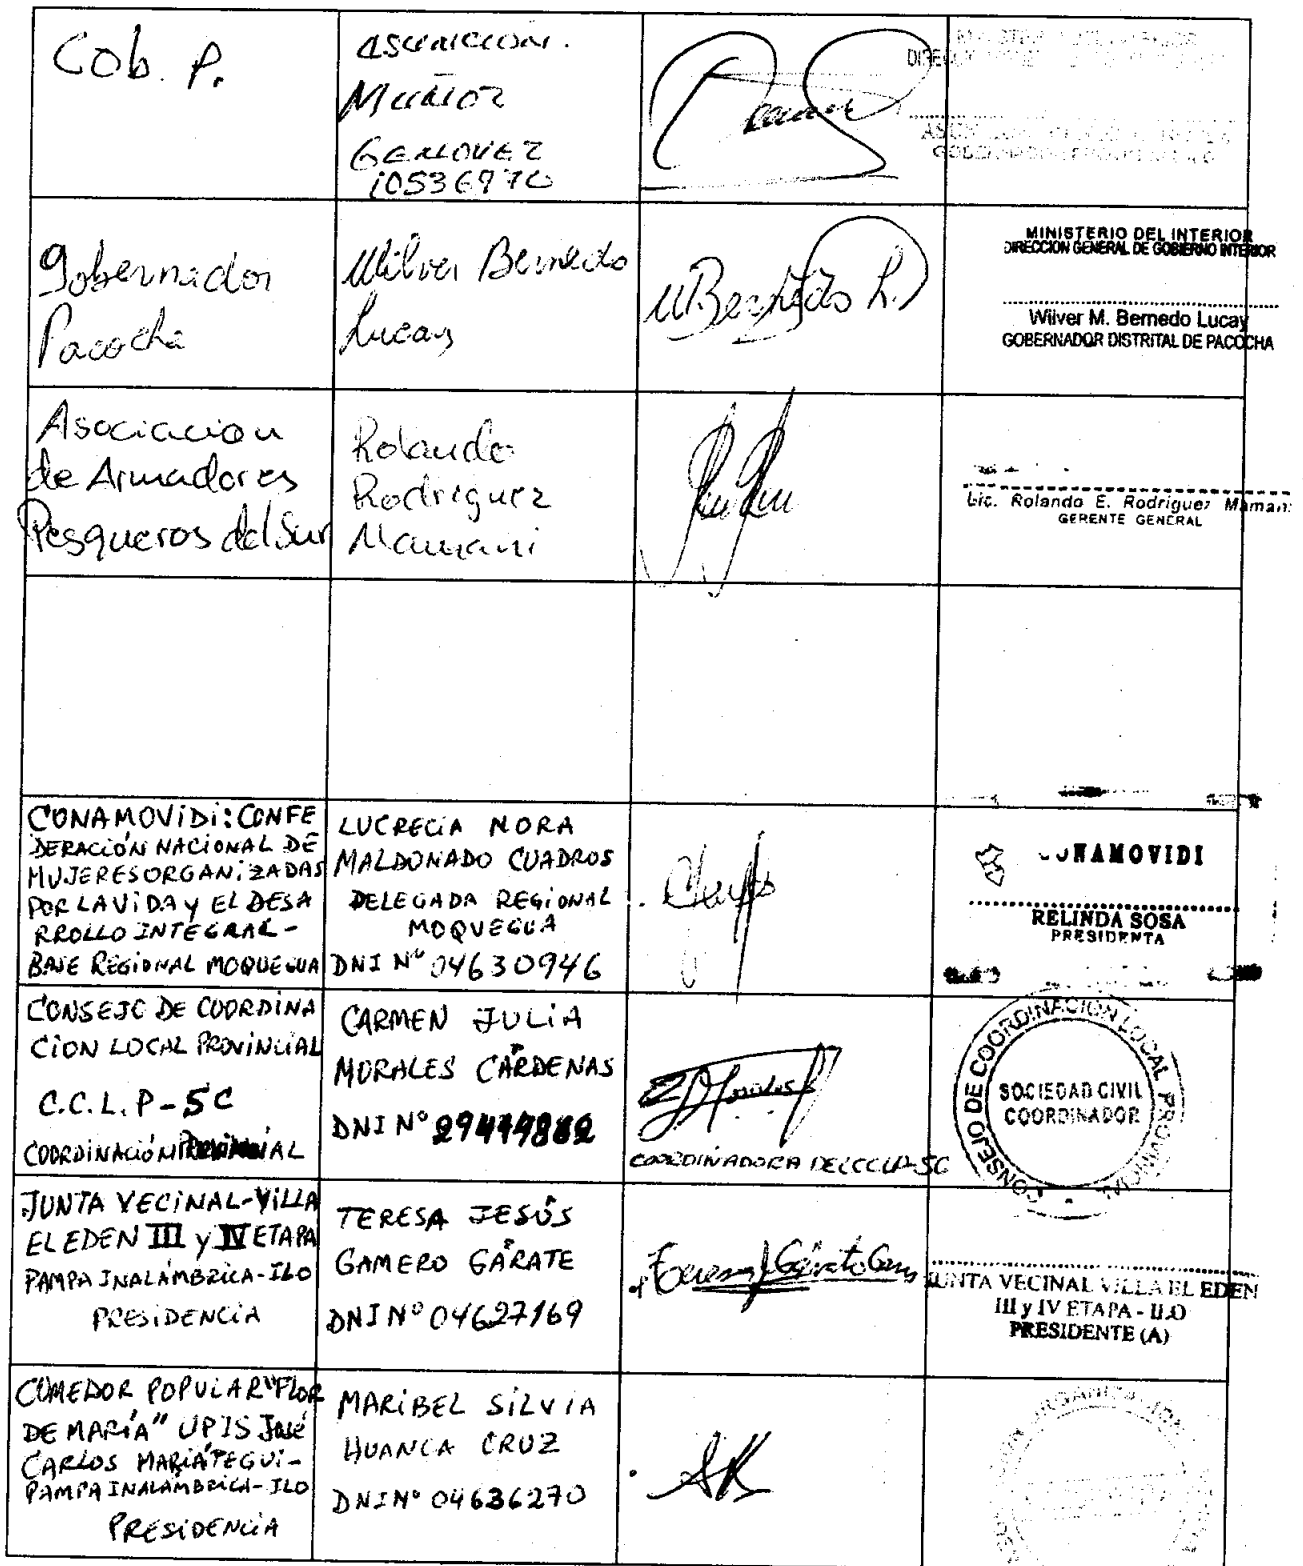 Gob. P.
Ascencion.
Muñoz
Genovez
10536970
Gobernador
Pacocha
Wilver Bernedo
Lucay
WBernedo L.
MINISTERIO DEL INTERIOR
DIRECCION GENERAL DE GOBIERNO INTERIOR
Wilver M. Bernedo Lucay
GOBERNADOR DISTRITAL DE PACOCHA
Asociacion
de Armadores
Pesqueros del Sur
Rolando
Rodriguez
Mamani
Lic. Rolando E. Rodriguez Mamani
GERENTE GENERAL
CONAMOVIDI: CONFE
DERACIÓN NACIONAL DE
MUJERES ORGANIZADAS
POR LA VIDA y EL DESA
RROLLO INTEGRAL-
BASE REGIONAL MOQUEGUA
LUCRECIA NORA
MALDONADO CUADROS
DELEGADA REGIONAL
MOQUEGUA
DNI Nº 04630946
CONAMOVIDI
RELINDA SOSA
PRESIDENTA
CONSEJO DE COORDINA
CION LOCAL PROVINCIAL
C.C.L.P-SC
COORDINACIÓN
CARMEN JULIA
MORALES CÁRDENAS
DNI Nº
COORDINADORA DEL CCLP-SC
CONSEJO DE COORDINACION LOCAL PROVINCIAL
SOCIEDAD CIVIL
COORDINADOR
JUNTA VECINAL-VILLA
EL EDEN III y IV ETAPA
PAMPA INALÁMBRICA-ILO
PRESIDENCIA
TERESA JESÚS
GAMERO GÁRATE
DNI Nº 04627169
JUNTA VECINAL VILLA EL EDEN
III y IV ETAPA - ILO
PRESIDENTE (A)
COMEDOR POPULAR "FLOR
DE MARÍA" UPIS José
CARLOS MARIÁTEGUI-
PAMPA INALÁMBRICA-ILO
PRESIDENCIA
MARIBEL SILVIA
HUANCA CRUZ
DNI Nº 04636270